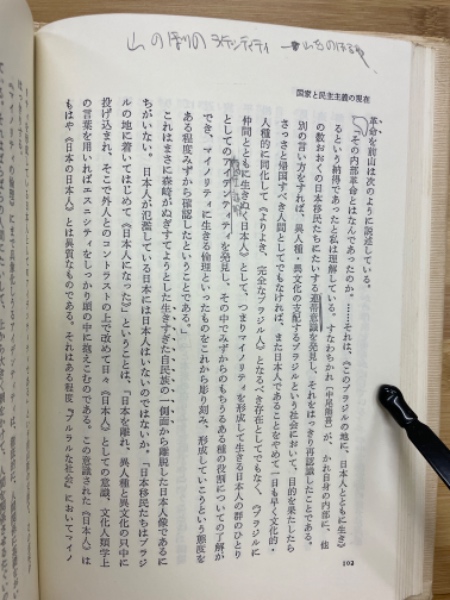 山のぼりの
国家と民主主義の現在
革命を前山は次のように説述している。
「その内部革命とはなんであったのか。……それは、《このブラジルの地に、日本人とともに生き》
るという納得であったと私は理解している。すなわちかれ(中尾熊喜)が、かれ自身の内部に、他
の数おおくの日本移民たちにたいする連帯意識を発見し、それをはっきり再認識したことである。
別の言い方をすれば、異人種・異文化の支配するブラジルという社会において、目的を果たしたら
さっさと帰国すべき人間としてでもなければ、また日本人であることをやめて一日も早く文化的・
人種的に同化して《よりよき、完全なブラジル人》となるべき存在としてでもなく、《ブラジルに
仲間とともに生きぬく日本人》として、つまりマイノリティを形成して生きる日本人の群のひとり
としてのアイデンティティを発見し、その中でみずからのもちうるある種の役割についての了解が
でき、マイノリティに生きる倫理といったものをこれから彫り刻み、形成していこうという態度を
ある程度みずから確認したということである。」
これはまさに森崎がぬぎすてようとした生きすぎた自民族の一側面から離脱した日本人像であるに
ちがいない。日本人が氾濫している日本には日本人はいないのではないか。「日本移民たちはブラジ
ルの地に着いてはじめて《日本人になった》」ということは、「日本を離れ、異人種と異文化の只中に
投げ込まれ、そこで外人とのコントラストの上で改めて日々《日本人》としての意識、文化人類学上
の言葉を用いればエスニシティをしっかり頭の中に抱えこむのである。この意識された《日本人》は
もはや《日本の日本人》とは異質なものである。それはある程度、プルラルな社会においてマイノ
102